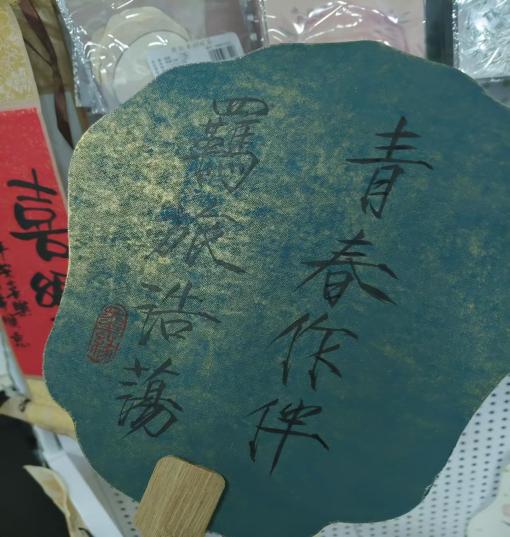 青春作伴
羈旅浩蕩
喜